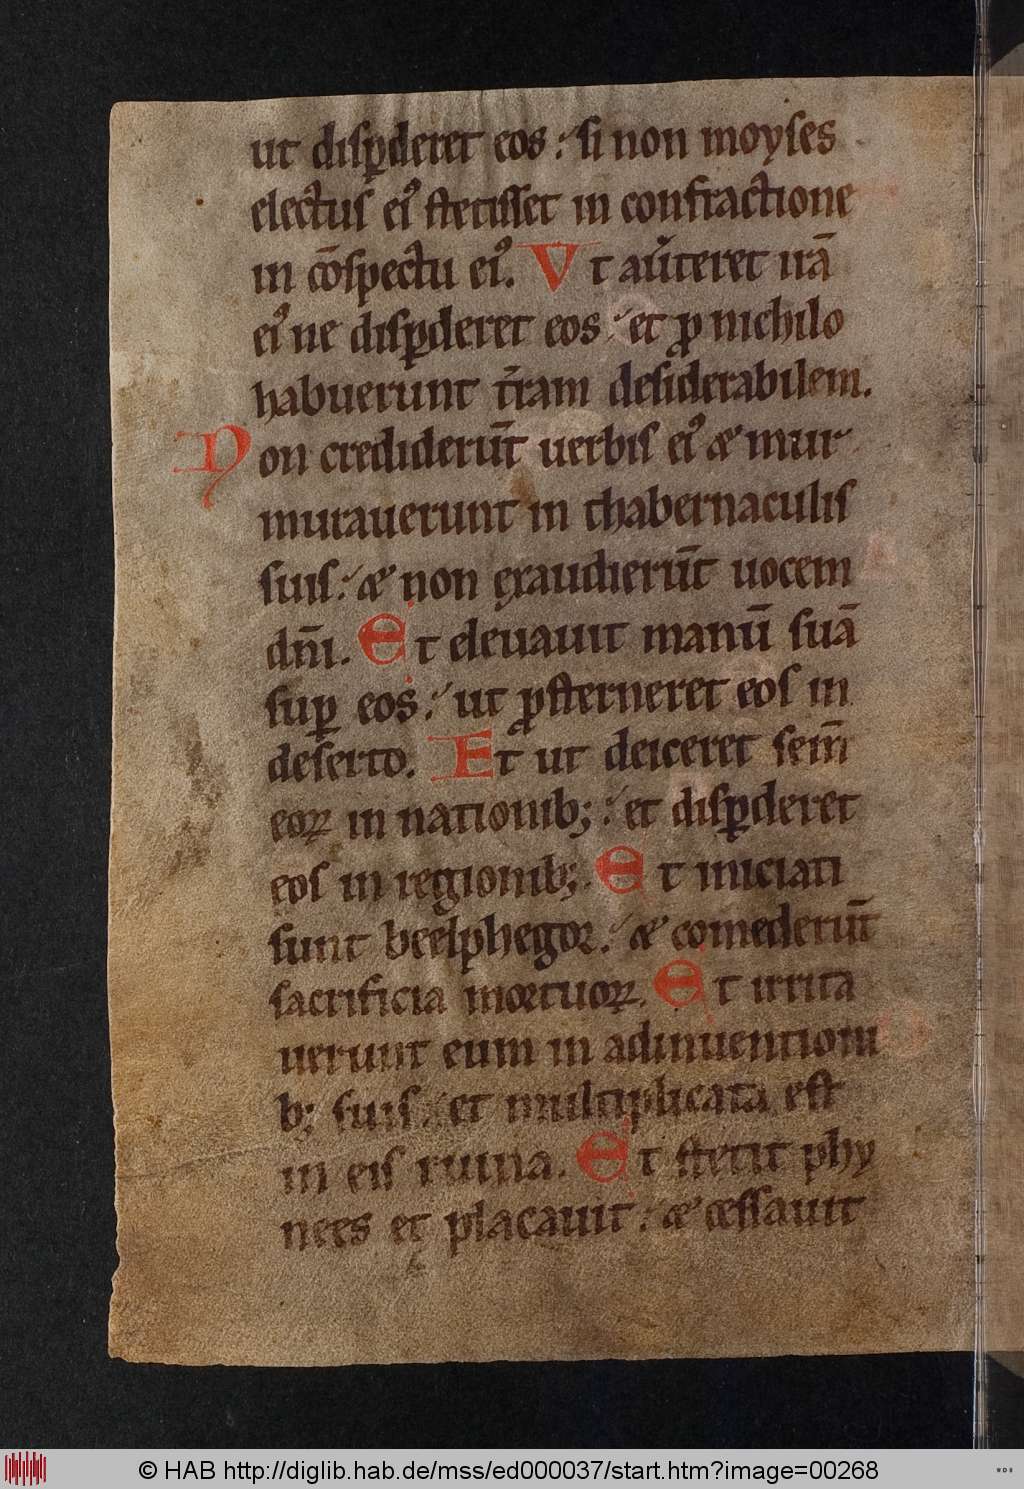 ut disꝑderet eos : si non moyses
electus eiꝰ stetisset in confractione
in cōspectu eiꝰ. Vt au̾teret irā
eiꝰ ne disꝑderet eos : et ꝓ nichilo
habuerunt tr̄am desiderabilem.
Non crediderūt uerbis eiꝰ & mur
murauerunt in thabernaculis
suis : & non exaudierūt uocem
dn̄i. Et eleuauit manū suā
suꝑ eos : ut ꝓsterneret eos in
deserto. Et ut deiceret sem̄
eoꝝ in nationib; : et disꝑderet
eos in regionib;. Et iniciati
sunt beelphegor. & comederūt
sacrificia mortuoꝝ. Et irrita
uerunt eum in adinuentioni
b; suis : et multiplicata est
in eis ruina. Et stetit phy
nees et placauit : & cessauit
© HAB http://diglib.hab.de/mss/ed000037/start.htm?image=00268